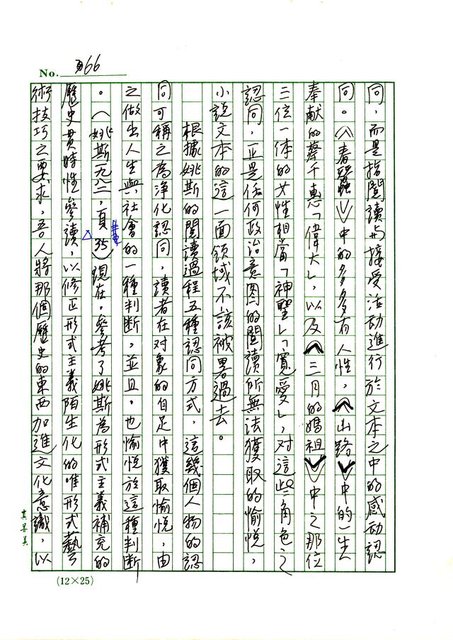 No. 366
同，而是指閱讀與接受活動進行於文本之中的感動認
同。《春蠶》中的多多有人性，《山路》中的一生
奉献的蔡千惠「偉大」，以及《三月的媽祖》中之那位
三位一体的女性相當「神聖」「寬愛」，对這些角色之
認同，正是任何政治意圖的閱讀所無法獲取的愉悅，
小說文本的這一面領域不該被畧過去。
根據姚斯的閱讀過程五種認同方式，這幾個人物的認
同可稱之為淨化認同，讀者在对象的自足中獲取愉悅，由
之做出人生與社會的一種判断，並且，也愉悅於這種判断
。（姚斯九六，頁35）現在，參考了姚斯為形式主義補充的
歷史貫時性變讀，以修正形式主義陌生化的唯形式藝
術技巧之要求，吾人將那個歷史的東西加進文化意識，以
(12×25)